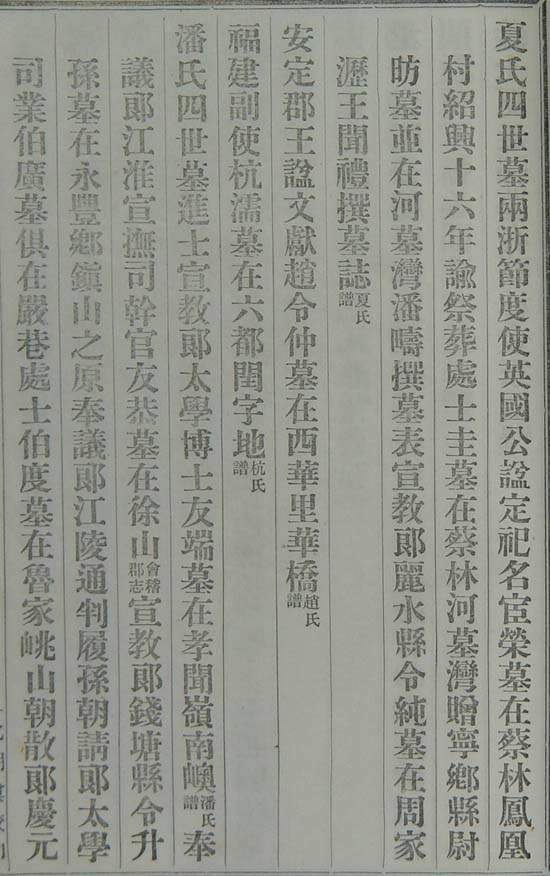 夏氏四世墓兩浙節度使英國公諡定祀名宦榮墓在蔡林鳳凰
村紹興十六年諭祭葬處士圭墓在蔡林河墓灣贈寧鄉縣尉
昉墓並在河墓灣潘疇撰墓表宣教郎麗水縣令純墓在周家
瀝王聞禮撰墓誌夏氏譜
安定郡王諡文獻趙令仲墓在西華里華橋趙氏譜
福建副使杭濡墓在六都閏字地杭氏譜
潘氏四世墓進士宣教郎太學博士友端墓在孝聞嶺南㠗潘氏譜奉
議郎江淮宣撫司幹官友恭墓在徐山會稽郡志宣教郎錢塘縣令升
孫墓在永豐鄉鎮山之原奉議郎江陵通判履孫朝請郎太學
司業伯廣墓俱在嚴巷處士伯度墓在魯家㟁山朝散郎慶元